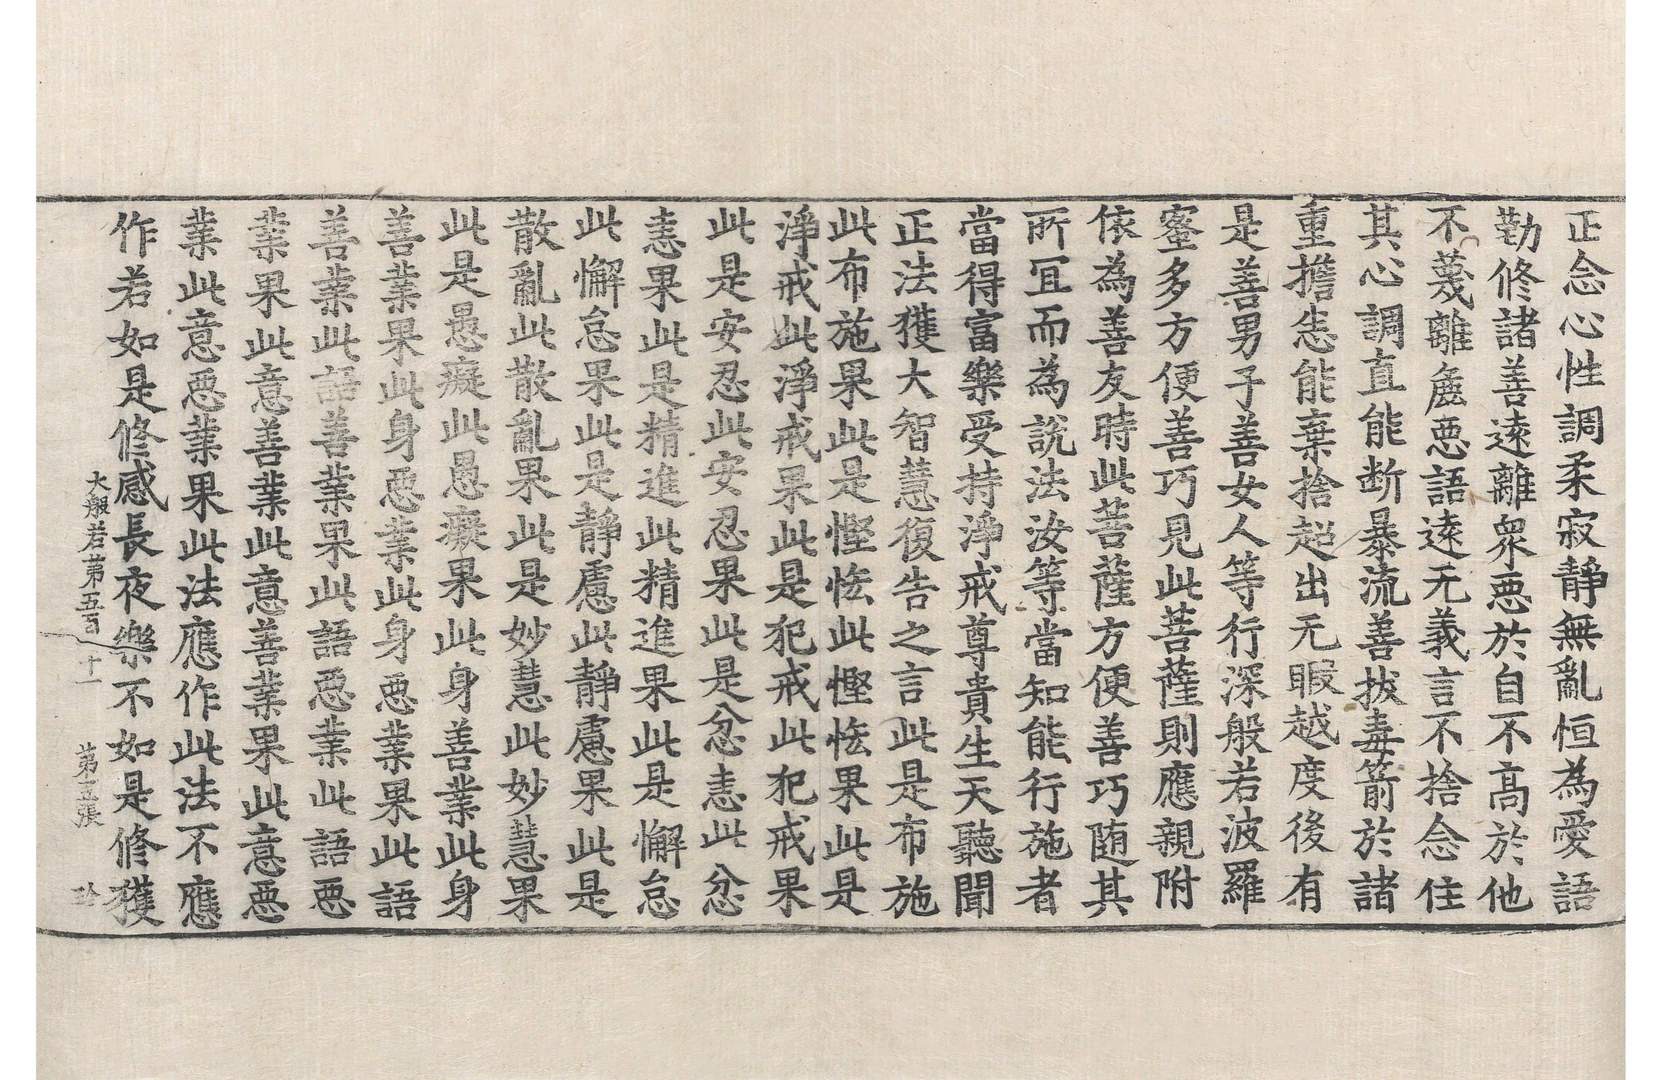 正念心性調柔寂静無亂恒為愛語
勤修諸善遠離衆惡於自不高於他
不蔑離麁惡語遠无義言不捨念住
其心調直能断暴流善拔毒箭於諸
重擔悉能棄捨超出无暇越度後有
是善男子善女人等行深般若波羅
蜜多方便善巧見此菩薩則應親附
依為善友時此菩薩方便善巧随其
所冝而為說法汝等當知能行施者
當得富樂受持淨戒尊貴生天聽聞
正法獲大智慧復告之言此是布施
此布施果此是慳悋此慳悋果此是
淨戒此淨戒果此是犯戒此犯戒果
此是安忍此安忍果此是忿恚此忿
恚果此是精進此精進果此是懈怠
此懈怠果此是静慮此静慮果此是
散亂此散亂果此是妙慧此妙慧果
此是愚癡此愚癡果此身善業此身
善業果此身惡業此身惡業果此語
善業此語善業果此語惡業此語惡
業果此意善業此意善業果此意惡
業此意惡業果此法應作此法不應
作若如是修感長夜樂不如是修獲
大般若第五百十一 第五張 珍